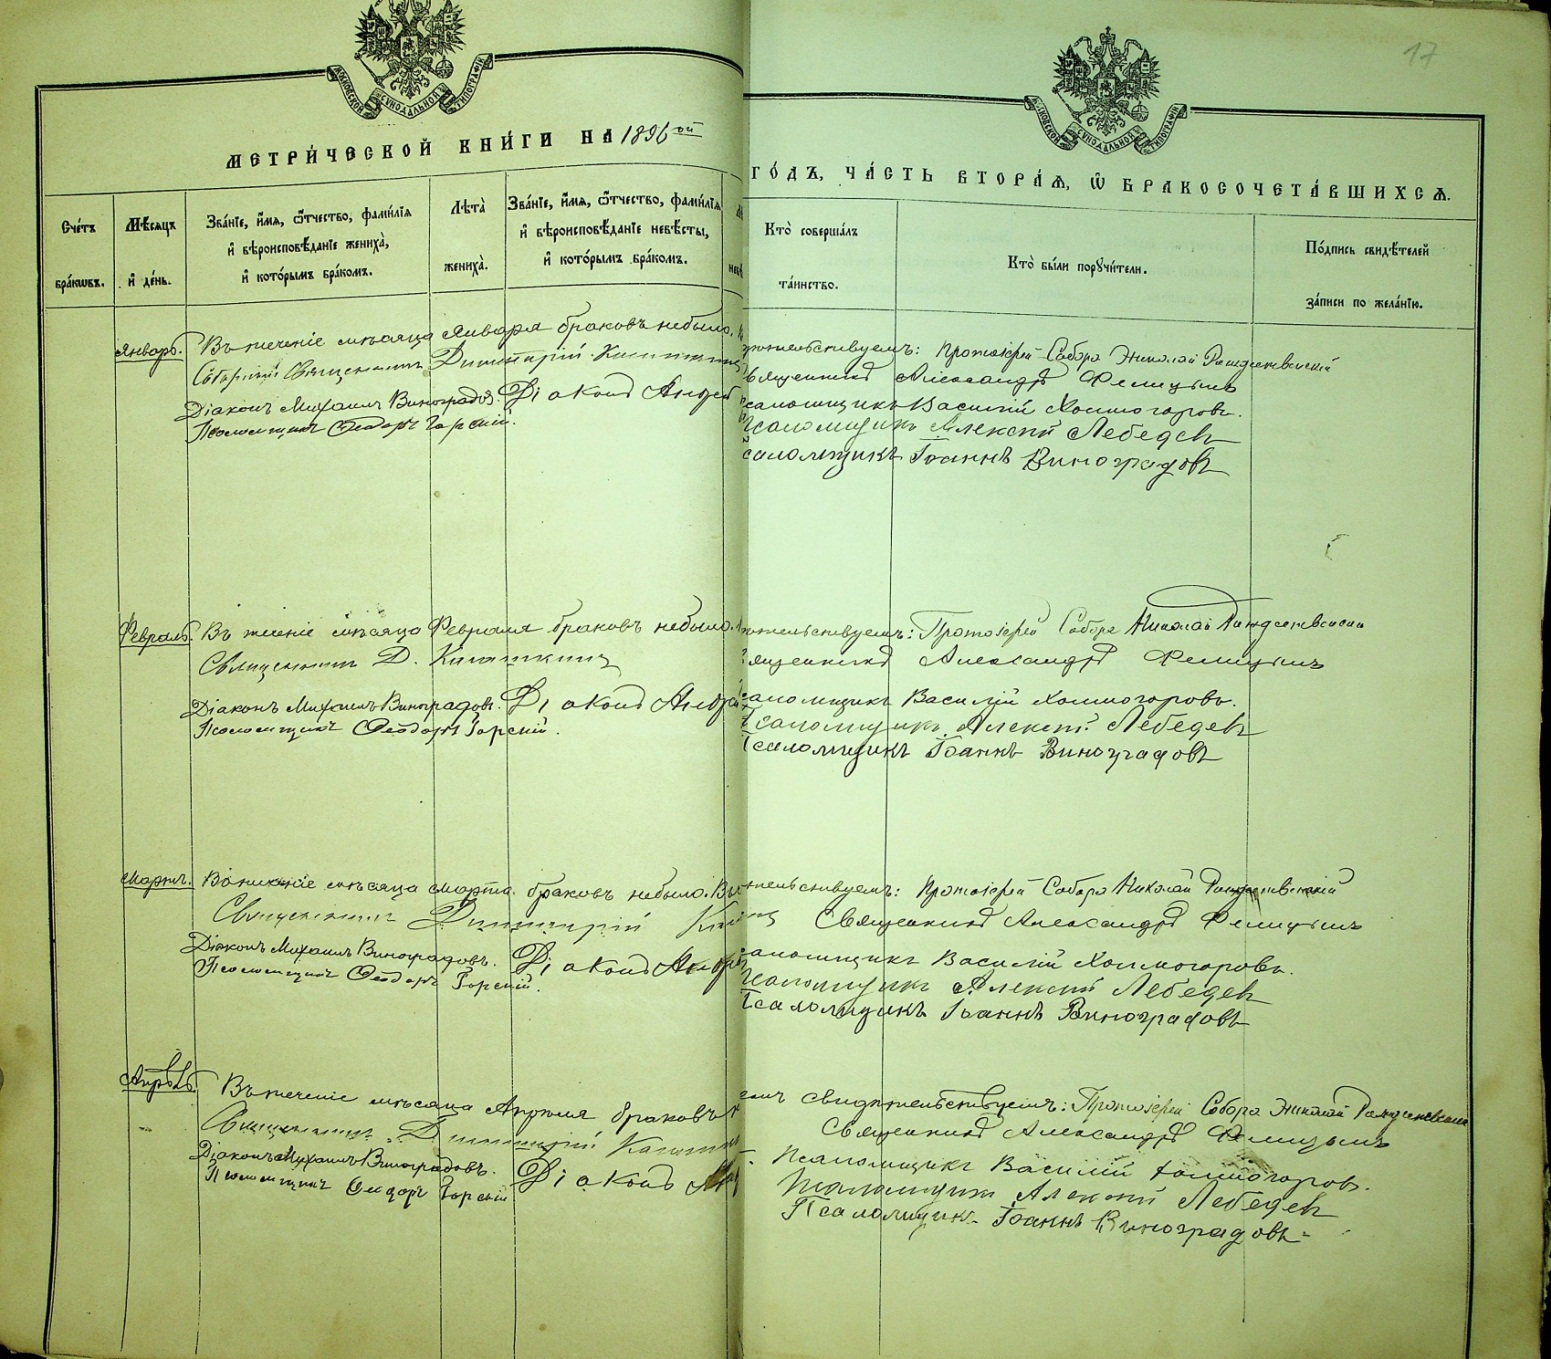 17
МОСКОВСКОЙ СѴНОДАЛЬНОЙ ТИПОГРАФІИ
МОСКОВСКОЙ СѴНОДАЛЬНОЙ ТИПОГРАФІИ
МЕТРИ́ЧЕСКОЙ КНИ́ГИ НА 1896ой ГО́ДЪ, ЧА́СТЬ ВТОРА́Я, Ѿ БРАКОСОЧЕТА́ВШИХСЯ.
Сче́тъ бра́кѡвъ.
Мѣ́сяцъ и҆ де́нь.
Зва́нїе, и҆́мя, ѻ҆́тчество, фами́лїя и҆ вѣроисповѣ́данїе жениха̀, и҆ кото́рымъ бра́комъ.
Лѣта̀ жениха̀.
Зва́нїе, и҆́мя, ѻ҆́тчество, фами́лїя и҆ вѣроисповѣ́данїе невѣ́сты, и҆ кото́рымъ бра́комъ.
Кто̀ соверша́лъ та́инство.
Кто̀ бы́ли порꙋчи́тели.
По́дпись свидѣ́телей за́писи по жела́нїю.
Январь. Въ теченіе мѣсяца Января браковъ небыло. Протоіерей Собора Николай Рождественскій
Священникъ Димитрій Священникъ Александръ
Діаконъ Михаилъ Виноградовъ. Діаконъ Псаломщикъ Василій Холмогоровъ.
Псаломщикъ Ѳеодоръ Горскій. Псаломщикъ Алексѣй Лебедевъ
Псаломщикъ Іоаннъ Виноградовъ
Февраль. Въ теченіе мѣсяца Февраля браковъ небыло. Протоіерей Собора Николай Рождественскій
Священникъ Д. Священникъ Александръ
Діаконъ Михаилъ Виноградовъ. Діаконъ Псаломщикъ Василій Холмогоровъ.
Псаломщикъ Ѳеодоръ Горскій. Псаломщикъ Алексѣй Лебедевъ
Псаломщикъ Іоаннъ Виноградовъ
Мартъ. Въ теченіе мѣсяца Марта браковъ небыло. Протоіерей Собора Николай Рождественскій
Священникъ Димитрій Священникъ Александръ
Діаконъ Михаилъ Виноградовъ. Діаконъ Псаломщикъ Василій Холмогоровъ.
Псаломщикъ Ѳеодоръ Горскій. Псаломщикъ Алексѣй Лебедевъ
Псаломщикъ Іоаннъ Виноградовъ
Апрѣль. Въ теченіе мѣсяца Апрѣля браковъ свидѣтельствуемъ: Протоіерей Собора Николай Рождественскій
Священникъ Димитрій Священникъ Александръ
Діаконъ Михаилъ Виноградовъ. Діаконъ Псаломщикъ Василій Холмогоровъ.
Псаломщикъ Ѳеодоръ Горскій Псаломщикъ Алексѣй Лебедевъ
Псаломщикъ Іоаннъ Виноградовъ